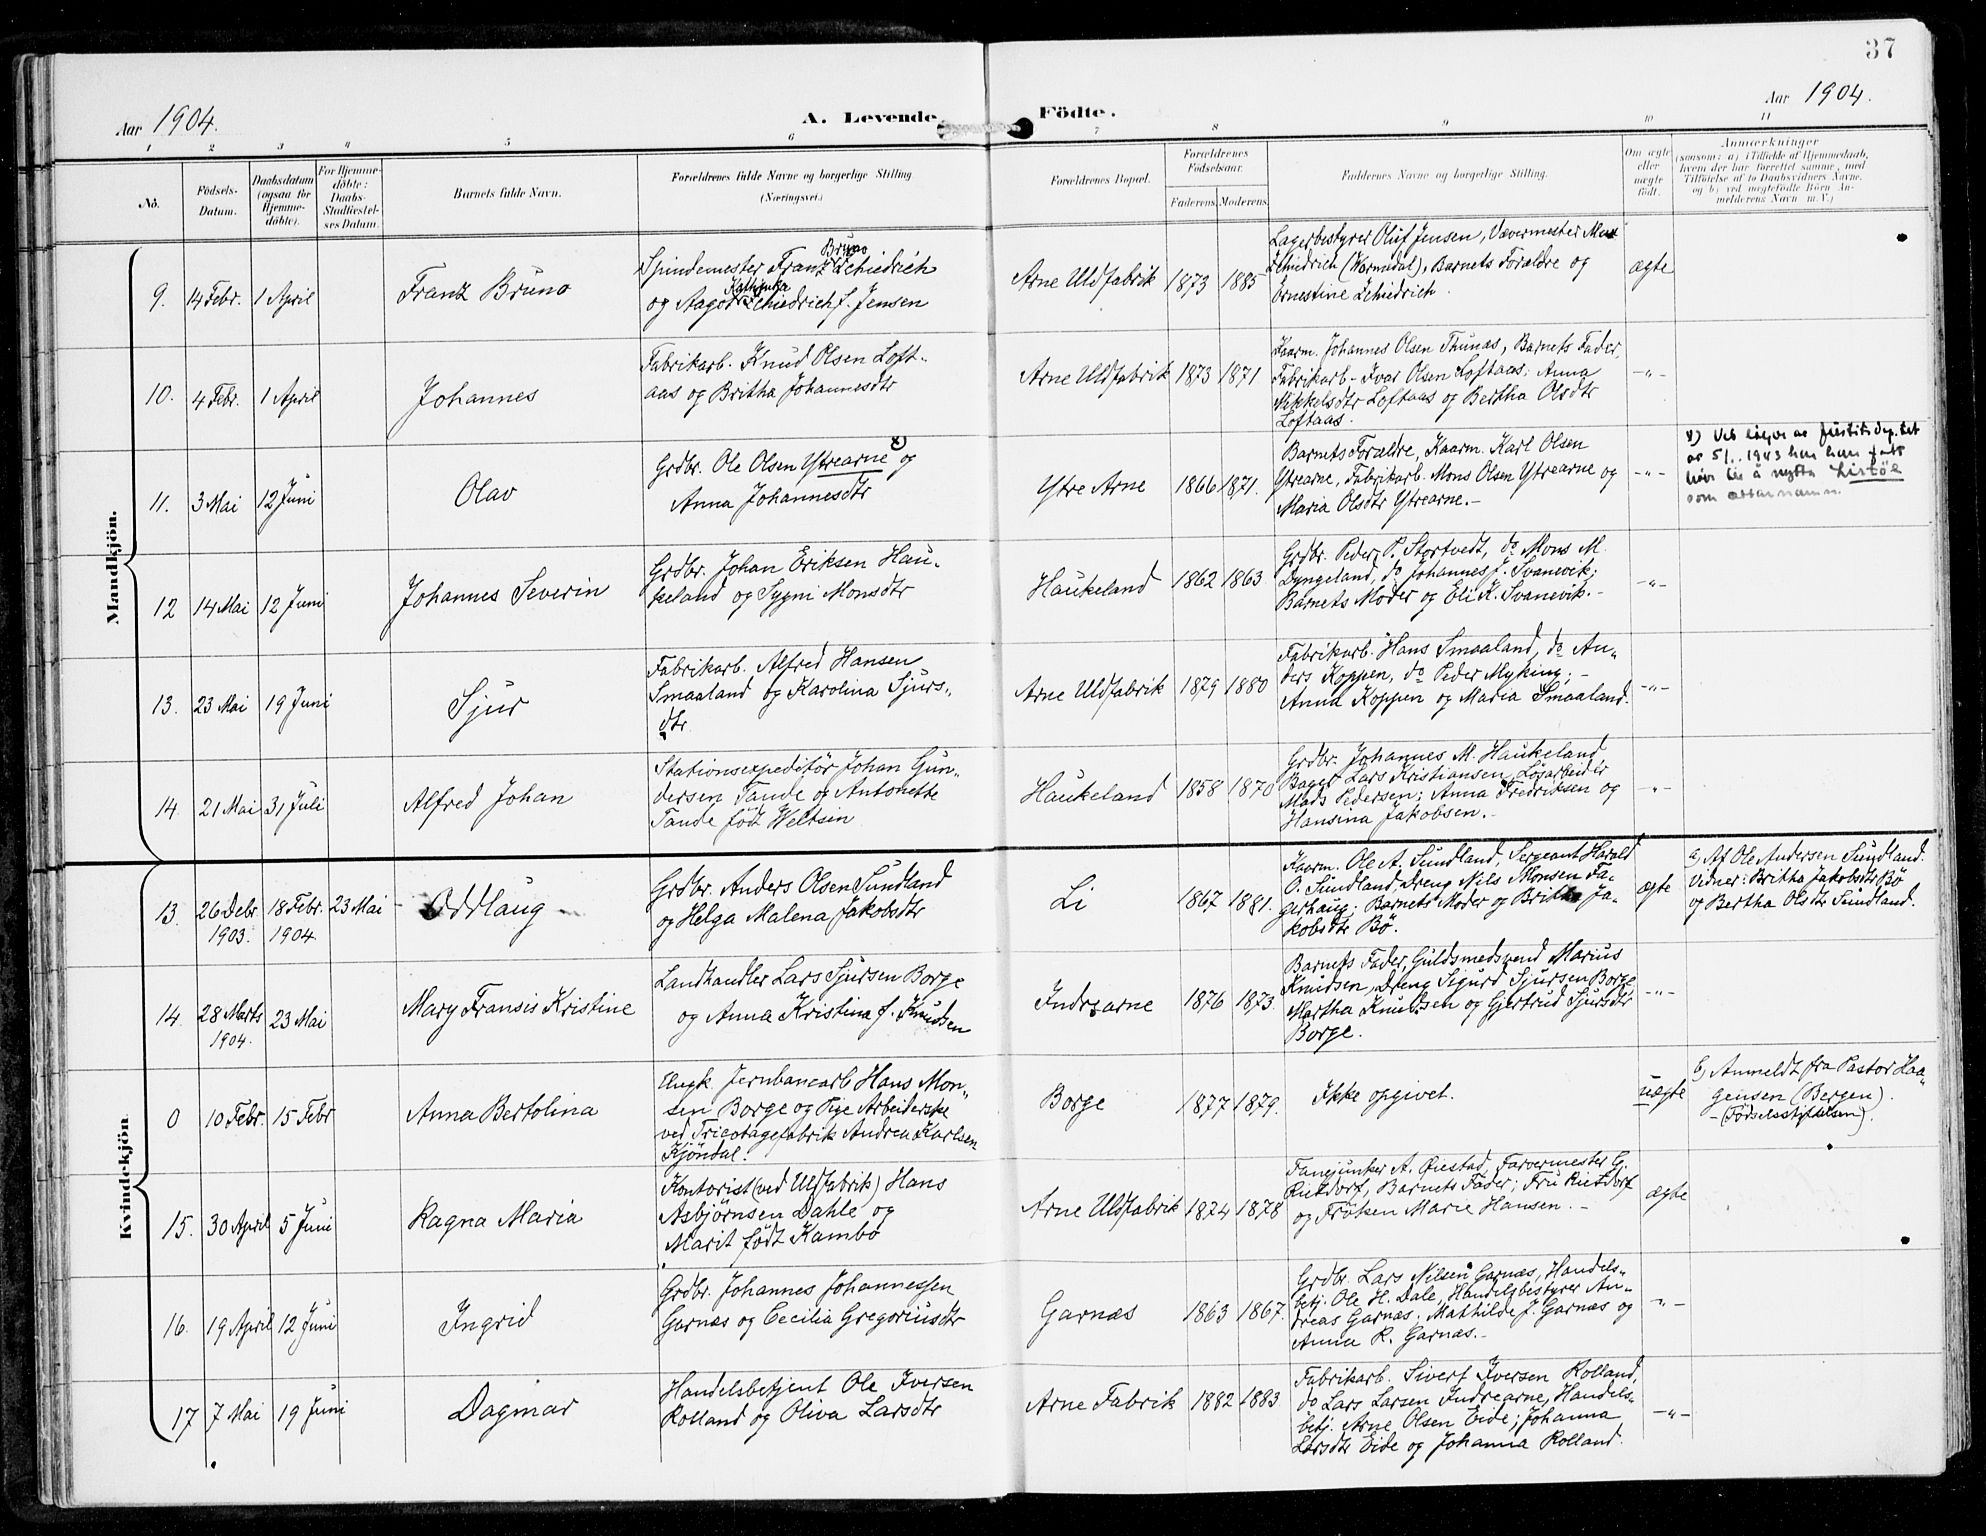 37
Aar 1904.
A. Levende
Födte.
Aar 1904.
1 2 3 4 5 6 7 8 9 10 11
No.
Födsels-
Datum.
Daabsdatum
(ogsaa for
Hjemme-
döbte).
For Hjemme-
döbte:
Daabs-
Stadfæstel-
ses Datum.
Barnets fulde Navn.
Forældrenes fulde Navne og borgerlige Stilling
(Næringsvei.)
Forældrenes Bopæl.
Forældrenes
Födselsaar.
Faderens. Moderens.
Faddernes Navne og borgerlige Stilling.
Om ægte
eller
uægte
födt.
Anmærkninger
(saasom: a) i Tilfælde af Hjemmedaab,
hvem der har forrettet samme, med
Tilföielse af to Daabsvidners Navne,
og b) ved uægtefödte Börn An-
melderens Navn m. V.)
Mandkjön.
9. 14 Febr. 1 April
Franz Bruno
Bruno
Spindemester Franz Schiedrich
Kathinka
og Aagot Schiedrich f. Jensen
Arne Uldfabrik 1873 1885
Lagerbestyrer Oluf Jensen, Vævermester Max
Schiedrich (Wormedal), Barnets Forældre og
Ernestine Schiedrich.
ægte
10. 4 Febr. 1 April
Johannes
Fabrikarb. Knud Olsen Loft-
aas og Britha Johannesdtr
Arne Uldfabrik 1873 1871
Kaarm. Johannes Olsen Thunæs, Barnets Fader,
Fabrikarb. Ivar Olsen Loftaas; Anna
Mikkelsdtr Loftaas og Bertha Olsdtr
Loftaas.
-"-
11. 3 Mai 12 Juni
Olav
Grdbr. Ole Olsen Ytrearne x) og
Anna Johannesdtr
Ytre Arne 1866 1871.
Barnets Forældre, Kaarm. Karl Olsen
Ytrearne, Fabrikarb. Mons Olsen Ytrearne og
Maria Olsdtr Ytrearne.-
-"-
x) Ved löyve av Justitsdep.tet
av 5/1. 1943 han han fått
löyve til å nytta Listöl
som ættarnamn.
12 14 Mai 12 Juni
Johannes Severin
Grdbr. Johan Eriksen Hau-
keland og Sygni Monsdtr
Haukeland 1862 1863
Grdbr. Peder P. Stortvedt, do Mons M.
Dyngeland, do Johannes J. Svanevik;
Barnets Moder og Eli K. Svanevik.-
-"-
13. 23 Mai 19 Juni
Sjur
Fabrikarb. Alfred Hansen
Smaaland og Karolina Sjurs-
dtr.
Arne Uldfabrik 1879 1880
Fabrikarb. Hans Smaaland, do An-
ders Koppen, do Peder Myking; -
Anna Koppen og Maria Smaaland.
-"-
14. 21 Mai 31 Juli
Alfred Johan
Stationsexpeditör Johan Gun-
dersen Tande og Antonette
Tande födt Weltsen
Haukeland 1858 1870
Grdbr. Johannes M. Haukeland
Bager Lars Kristiansen, Lösarbeider
Mads Pedersen; Anna Fredriksen og
Hansina Jakobsen.-
-"-
Kvindekjön
13. 26 Debr. 18 Febr. 23 Mai
1903. 1904.
Oddlaug
Grdbr. Anders Olsen Sundland
og Helga Malena Jakobsdtr
Li 1867 1881.
Kaarm. Ole A. Sundland, Sergeant Harald
O. Sundland, Dreng Nils Monsen Fa-
gerhaug; Barnets Moder og Britha Ja-
kobsdtr Bö.
ægte
a) Af Ole Andersen Sundland.
Vidner: Britha Jakobsdtr Bö
og Bertha Olsdtr Sundland.
14. 28 Marts 23 Mai
1904.
Mary Fransis Kristine
Landhandler Lars Sjursen Borge
og Anna Kristina f. Knudsen
Indrearne 1876 1873.
Barnets Fader, Guldsmedsvend Marius
Knudsen, Dreng Sigurd Sjursen Borge
Martha Knudsen og Gjertrud Sjursdtr
Borge.
-"-
0 10 Febr. 15 Febr
Anna Bertolina
Ungk. Jernbanearb Hans Mon-
sen Borge og Pige Arbeiderske
ved Tricotagefabrik Andrea Karlsen
Kjöndal.
Borge 1877 1879.
Ikke opgivet.
uægte
b) Anmeldt fra Pastor Haa-
gensen (Bergen).
-(Födselsstiftelsen).
15. 30 April 5 Juni
Ragna Maria
Kontorist (ved Uldfabrik) Hans
Asbjörnsen Dahle og
Marit födt Kambo
Arne Uldfabrik 1874 1878
Fanejunker A. Øiestad, Farvermester G.
Rietdorf, Barnets Fader; Fru Rietdorf
og Fröken Marie Hansen. -
ægte
16. 19 April 12 Juni
Ingrid
Grdbr. Johannes Johannessen
Garnæs og Cecilia Gregoriusdtr
Garnæs 1863 1867.
Grdbr. Lars Nilsen Garnæs, Handels-
betj. Ole H. Dale, Handelsbestyrer An-
dreas Garnæs. Mathilde J. Garnæs og
Anna K. Garnæs.-
-"-
17 7 Mai 19 Juni
Dagmar
Handelsbetjent Ole Iversen
Rolland og Oliva Larsdtr
Arne Fabrik 1882 1883
Fabrikarb. Sivert Iversen Rolland,
do Lars Larsen Indrearne, Handels-
betj. Arne Olsen Eide; Johanna
Larsdtr Eide og Johanna Rolland.
-"-